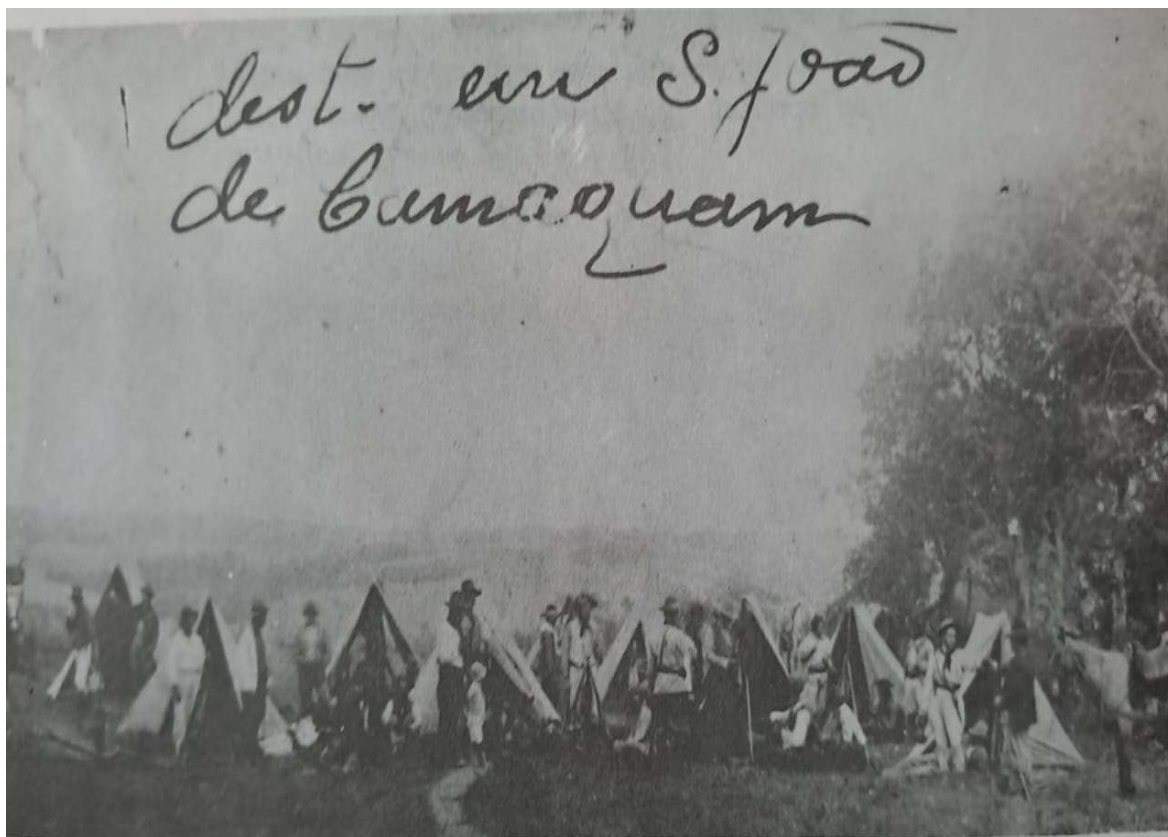 dest. em S. João
de Camaquam